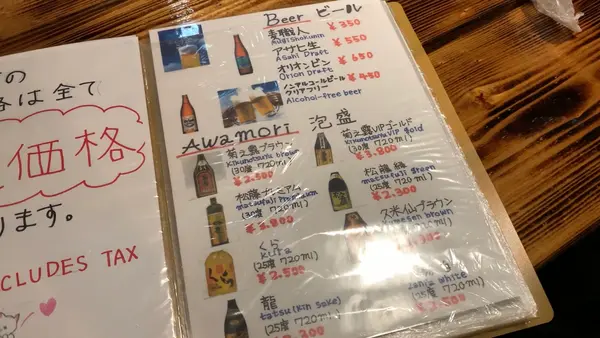 の
は全て
価格
ります。
CLUDES TAX
Beer ビール
麦職人
Mugishokunin
¥350
アサヒ生
Asahi Draft
¥550
オリオンビン
Orion Draft
¥650
ノンアルコールビール
クリアフリー
Alcohol-free beer
¥450
Awamori 泡盛
菊之露ブラウン
Kikunotsuyu brown
(30度 720ml)
¥2.500
菊之露VIPゴールド
Kikunotsuyu VIP gold
(30度 720ml)
¥3.800
松藤プレミアム
matsufuji Premium
(30度 720ml)
800
松藤 緑
matsufuji green
(25度 720ml)
¥2.300
くら
Kura
(25度 720ml)
¥2.500
久米仙ブラウン
brown
720ml)
龍
tatsu (kin sake)
(25度 720ml)
300
white
(25度 720ml)
500